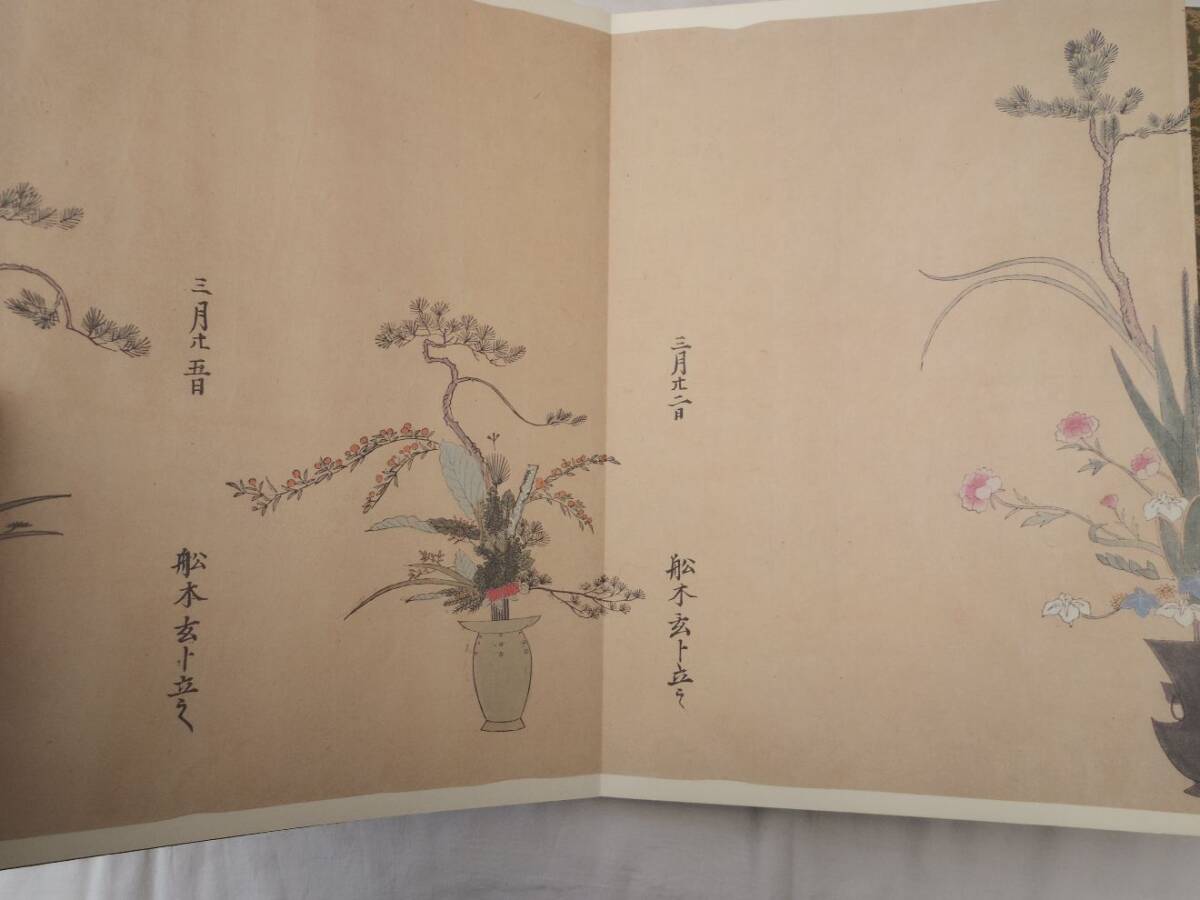 三月廾二日
舩木玄卜立之
三月廾五日
舩木玄卜立之